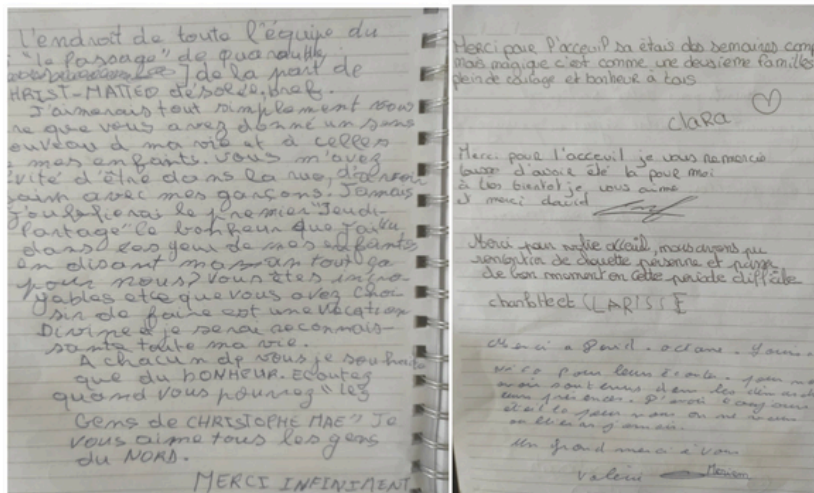 l'endroit de toute l'équipe du
"le Passage" de
de la part de
HRIST-MATTEO désolée, bref.
J'aimerais tout simplement vous
re que vous avez donné un sens
ouveau à ma vie et à celles
mes enfants. Vous m'avez
vité d'être dans la rue, d'avoir
aim avec mes garçons. Jamais
j'oublierai le premier "Jeudi-
Partage" le bonheur que j'ai vu
dans les yeux de mes enfants
en disant maman tout ça
pour nous? Vous êtes incro-
yables et ce que vous avez choi-
sir de faire est une vocation
Divine et je serai reconnais-
sante toute ma vie.
A chacun de vous je souhaite
que du BONHEUR. Ecoutez
quand vous pourrez "les
Gens de CHRISTOPHE MAE" Je
vous aime tous les gens
du NORD.
MERCI INFINIMENT
Merci pour l'acceuil sa étais des semaines comp
mais magique c'est comme une deuxieme familles
plein de courage et bonheur à tous
CLARA
Merci pour l'acceuil je vous remercie
d'avoir été là pour moi
à très bientot je vous aime
et merci david
Merci pour votre acceuil, nous avons pu
remontrer de chouette personne et passer
de bon moment en cette periode difficile
charlotte et CLARISSE
Merci a David. octane.
pour leurs écoute. pour
avoir soutenus dans les
leurs présences. D'avoir toujours
été là pour nous on ne vous
oubliera jamais.
Un grand merci à vous
Valérie Meriem